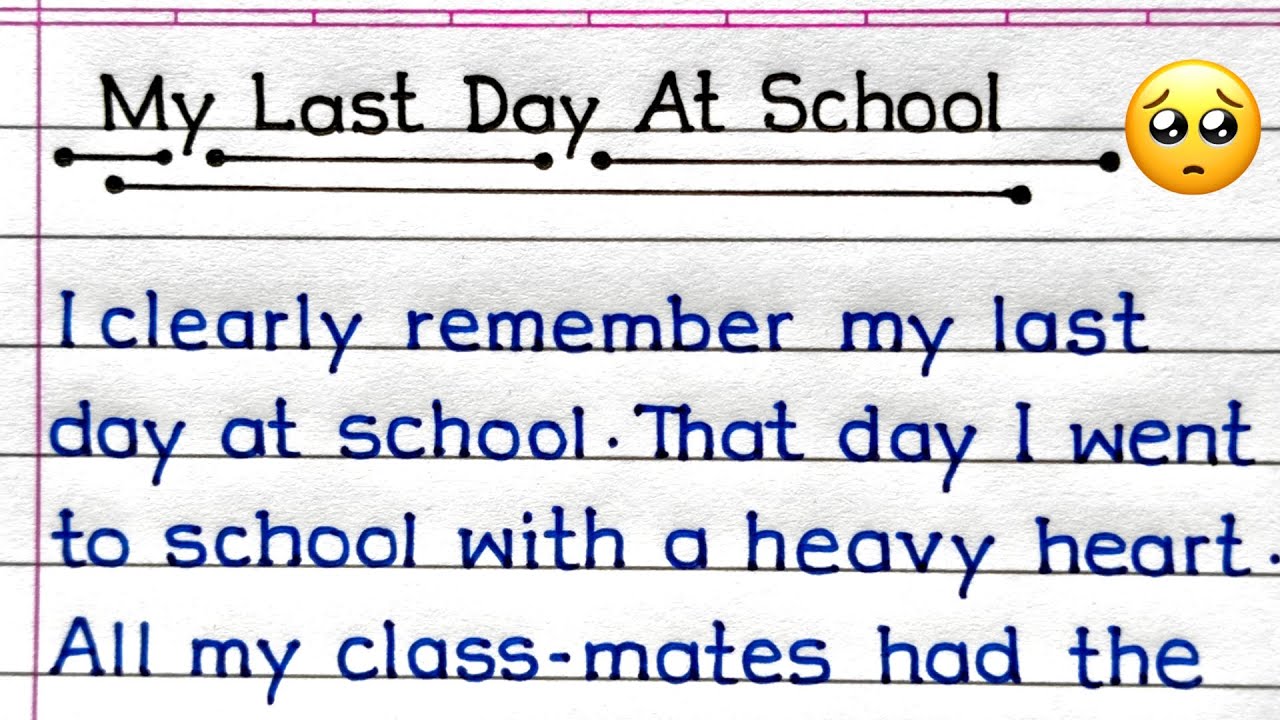 My Last Day At School
I clearly remember my last
day at school. That day I went
to school with a heavy heart.
All my class-mates had the